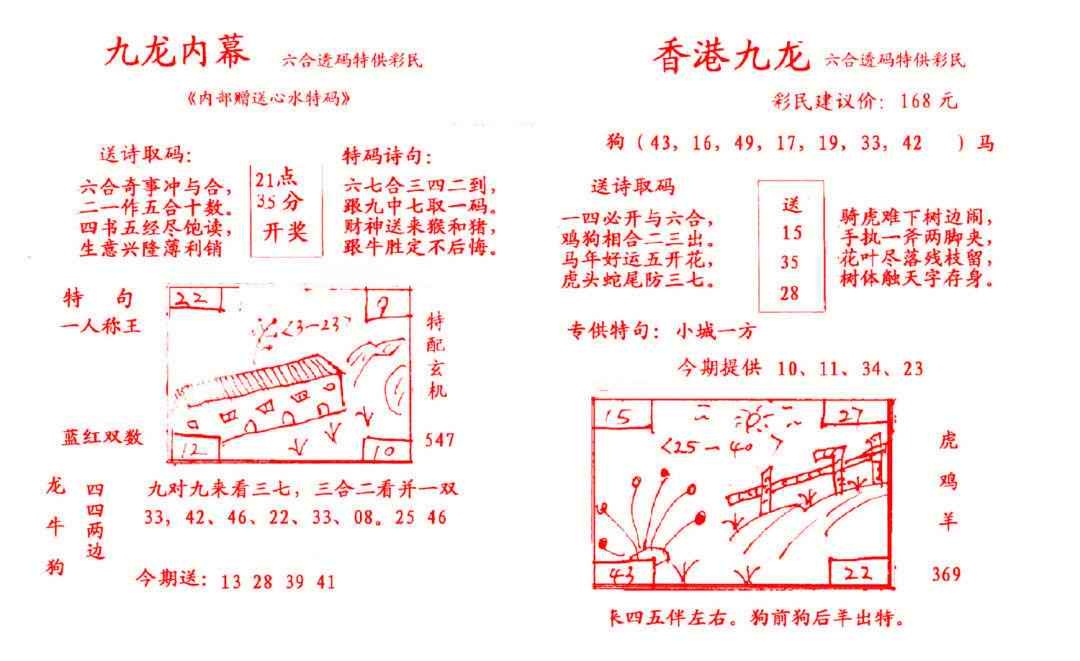 九龙内幕 六合透码特供彩民
《内部赠送心水特码》
送诗取码:
六合奇事冲与合,
二一作五合十数。
四书五经尽饱读,
生意兴隆薄利销
21点
35分
开奖
特码诗句:
六七合三四二到,
跟九中七取一码。
财神送来猴和猪,
跟牛胜定不后悔。
特 句
一人称王
蓝红双数
22
9
<3-23>
12
10
特配玄机
547
龙牛狗
四四两边
九对九来看三七，三合二看并一双
33, 42、46、22、33、08。25 46
今期送: 13 28 39 41
香港九龙 六合透码特供彩民
彩民建议价: 168 元
狗 (43, 16, 49, 17, 19, 33, 42 ) 马
送诗取码
一四必开与六合,
鸡狗相合二三出。
马年好运五开花,
虎头蛇尾防三七。
送
15
35
28
骑虎难下树边闹,
手执一斧两脚夹,
花叶尽落残枝留,
树体触天字存身。
专供特句: 小城一方
今期提供 10、11、34、23
15
27
<25-40>
43
22
虎
鸡
羊
369
四五伴左右。狗前狗后羊出特。